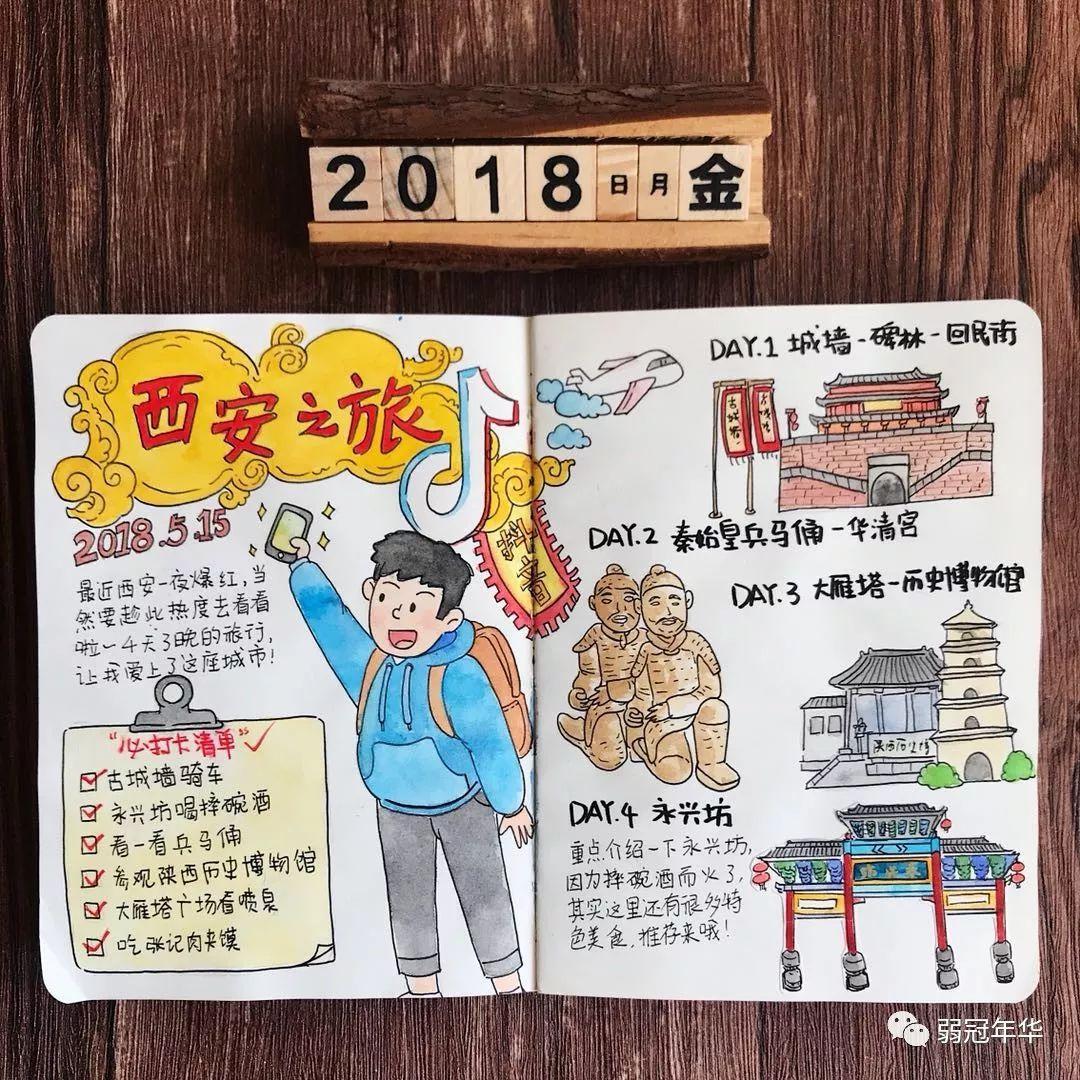 2018日月金
西安之旅
2018.5.15
最近西安一夜爆红,当
然要趁此热度去看看
啦一4天3晚的旅行,
让我爱上了这座城市!
"必打卡清单"
古城墙骑车
永兴坊喝摔碗酒
看一看兵马俑
参观陕西历史博物馆
大雁塔广场看喷泉
吃张记肉夹馍
抖音
DAY.1 城墙-碑林-回民街
古城墙
DAY.2 秦始皇兵马俑-华清宫
DAY.3 大雁塔-历史博物馆
DAY.4 永兴坊
重点介绍一下永兴坊,
因为摔碗酒而火了,
其实这里还有很多特
色美食,推荐来哦!
弱冠年华